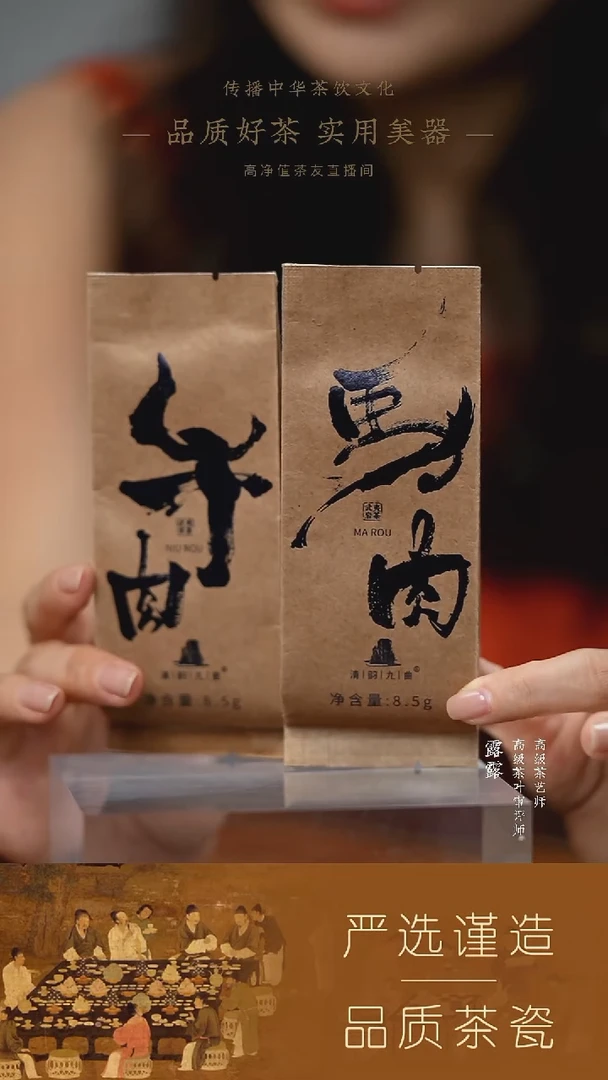 传播中华茶饮文化
品质好茶 实用美器
高净值茶友直播间
牛肉
NIU ROU
清韵九曲
净含量:8.5g
馬肉
MA ROU
清韵九曲
净含量:8.5g
高级茶艺师
高级茶叶审评师
露露
严选谨造
品质茶瓷